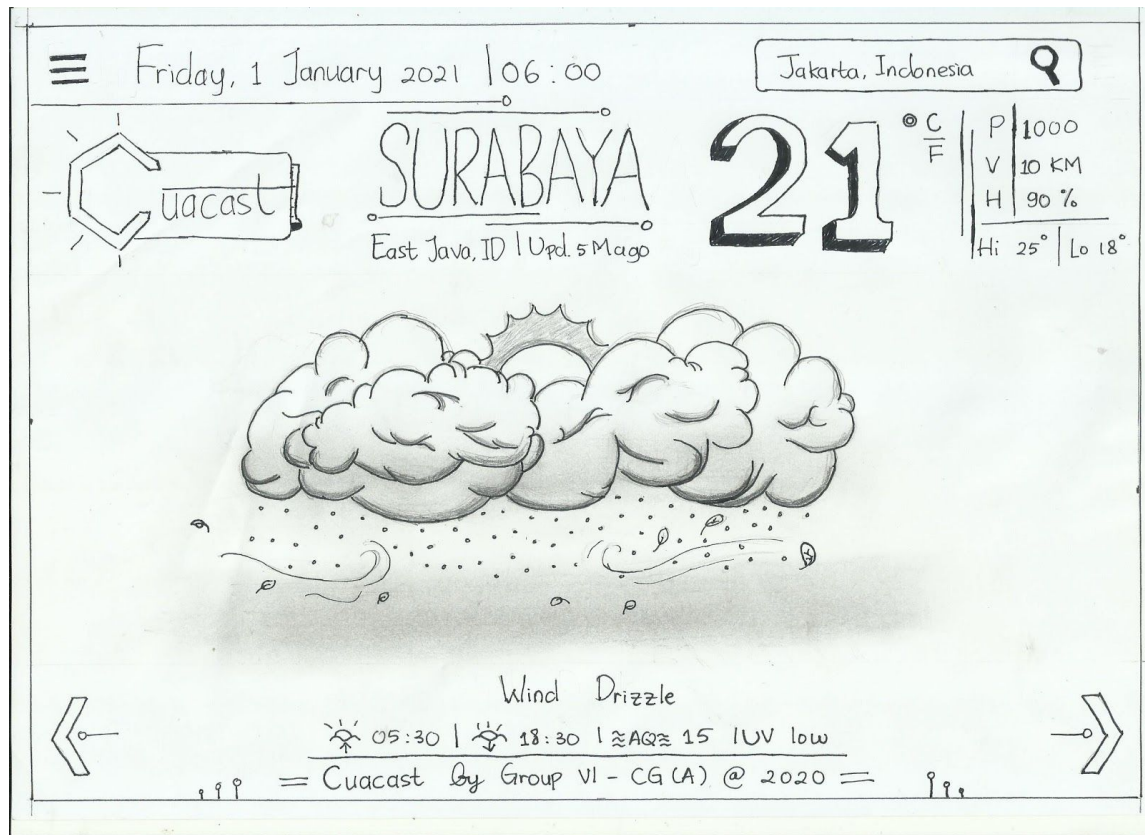 Friday, 1 January 2021 | 06:00
Jakarta, Indonesia
Cuacast
SURABAYA
East Java, ID | Upd. 5 M ago
21 ° C
F
P 1000
V 10 KM
H 90 %
Hi 25° | Lo 18°
Wind Drizzle
05:30 | 18:30 | ≈AQ≈ 15 | UV low
= Cuacast by Group VI - CG (A) @ 2020 =